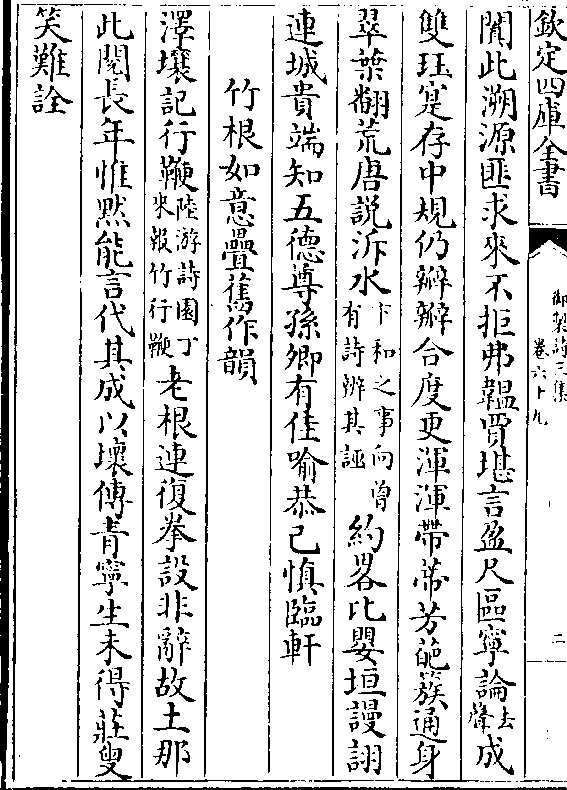 欽定四庫全書
御製詩三集
卷六十九
二
闐此溯源匪求來不拒弗韞賈堪言盈尺區寧論去聲成
雙珏寔存中規仍瓣瓣合度更渾渾帶蒂芳葩簇通身
翠葉翻荒唐説泝水卞和之事向曾有詩辨其誣約畧比嬰垣謾詡
連城貴端知五德尊孫卿有佳喻恭己慎臨軒
竹根如意疊舊作韻
澤壤記行鞭陸游詩園丁來報竹行鞭老根連復拳設非辭故土那
此閱長年惟黙能言代其成以壞傳青寧生未得莊叟
笑難詮